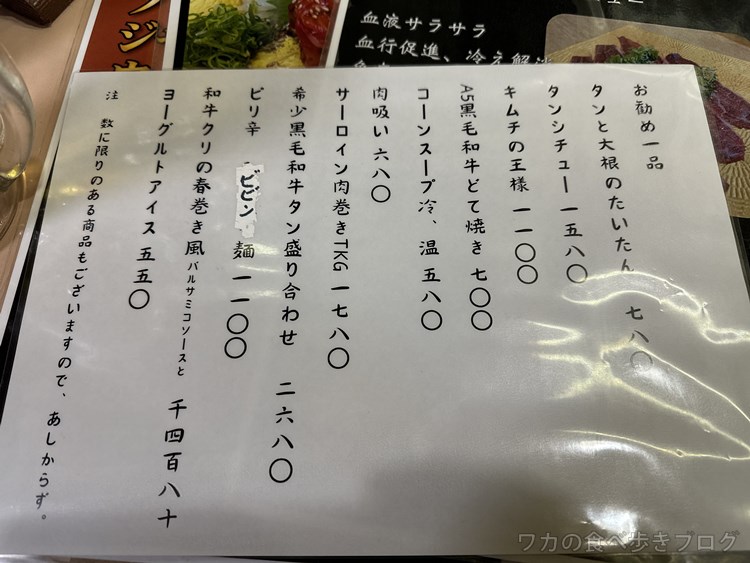 血液サラサラ
血行促進、冷え解消
お勧め一品
タンと大根のたいたん 七八〇
タンシチュー 一五八〇
キムチの王様 一一〇〇
A5黒毛和牛どて焼き 七〇〇
コーンスープ冷、温 五八〇
肉吸い 六八〇
サーロイン肉巻きTKG 一七八〇
希少黒毛和牛タン盛り合わせ 二六八〇
ピリ辛 ビビン 麺 一一〇〇
和牛クリの春巻き風バルサミコソースと 千四百八十
ヨーグルトアイス 五五〇
注 数に限りのある商品もございますので、あしからず。
ワカの食べ歩きブログ